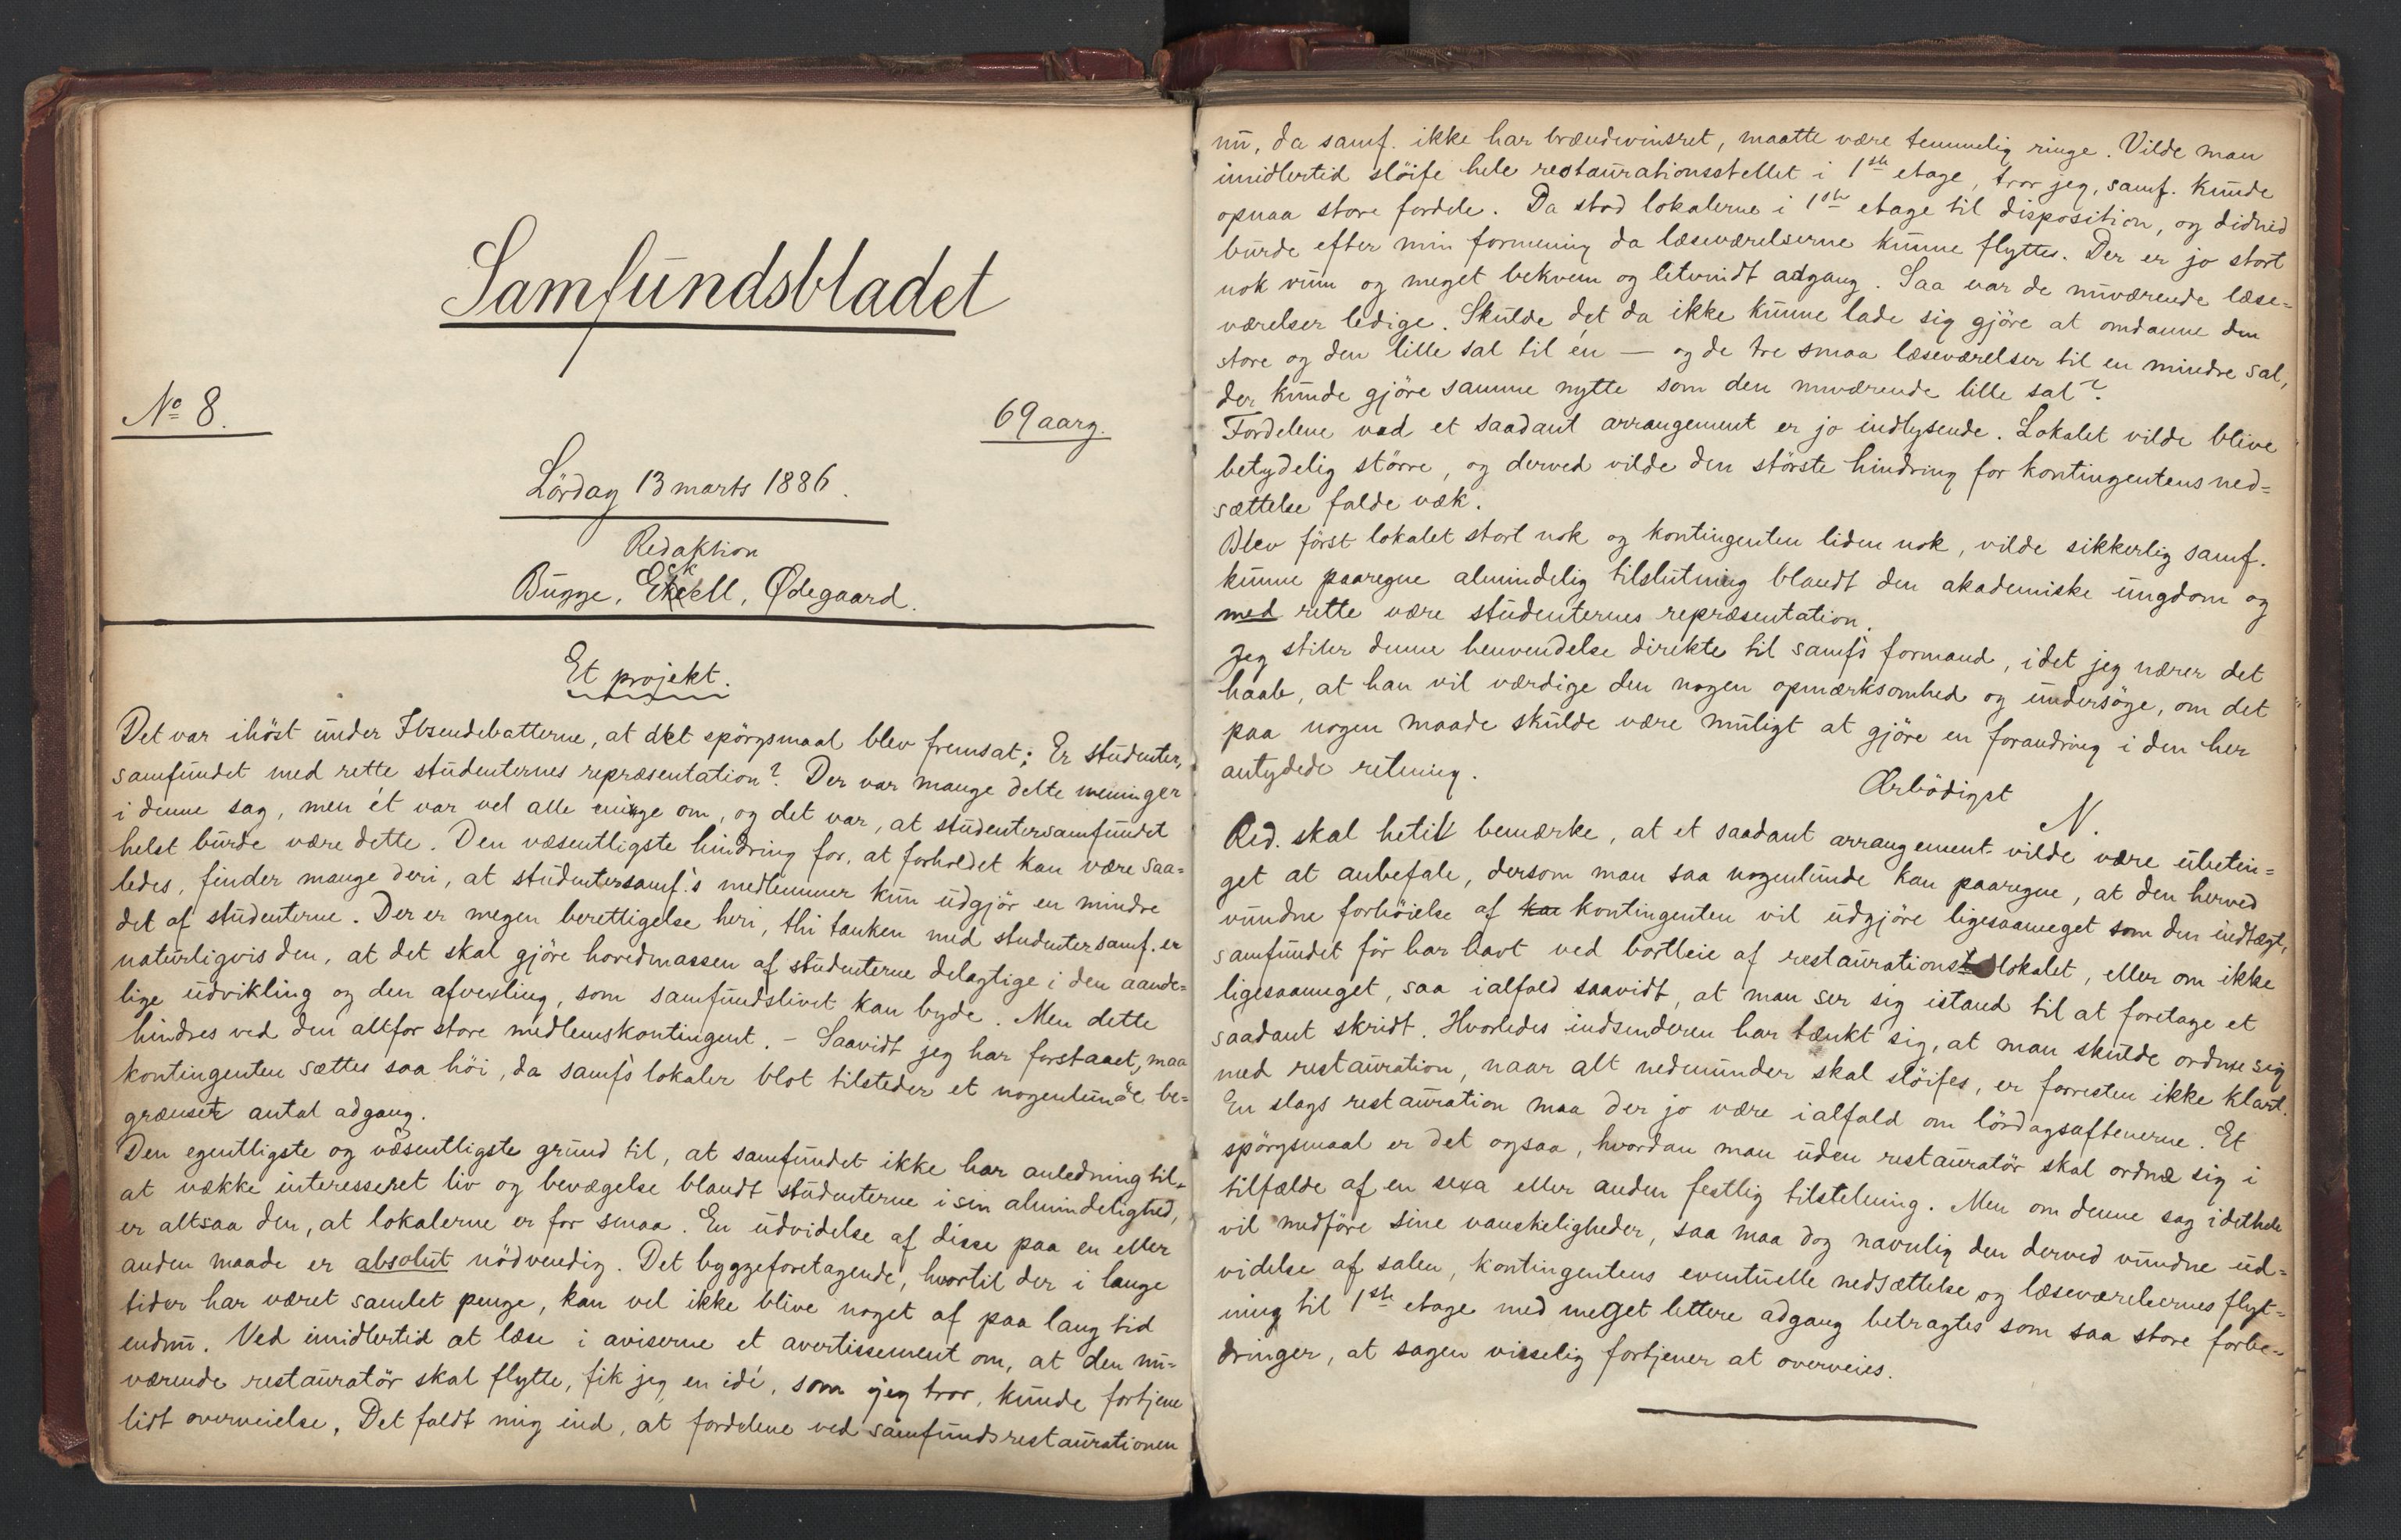 Samfundsbladet
No 8.
69 aarg.
Lördag 13 marts 1886.
Redaktion
Bugge, Eckell, Ødegaard.
Et projekt.
Det var ihöst under Ibsendebatterne, at det spörgsmaal blev fremsat: Er studenter,
samfundet med rette studenternes repræsentation? Der var mange delte meninger
i denne sag, men ét var vel alle enige om, og det var, at studentersamfundet
helst burde være dette. Den væsentligste hindring for, at forholdet kan være saa=
ledes, finder mange deri, at studentersamf.'s medlemmer kun udgjör en mindre
del af studenterne. Der er megen berettigelse heri, thi tanken med studentersamf. er
naturligvis den, at det skal gjöre hovedmassen af studenterne delagtige i den aande=
lige udvikling og den afvexling, som samfundslivet kan byde. Men dette
hindres ved den altfor store medlemskontingent. – Saavidt jeg har forstaaet, maa
kontingenten sættes saa höi, da samf's lokaler blot tilsteder et nogenlunde be=
grænset antal adgang.
Den egentligste og væsentligste grund til, at samfundet ikke har anledning til
at vække interesseret liv og bevægelse blandt studenterne i sin almindelighed,
er altsaa den, at lokalerne er for smaa. En udvidelse af disse paa en eller
anden maade er absolut nödvendig. Det byggeforetagende, hvortil der i lange
tider har været samlet penge, kan vel ikke blive noget af paa lang tid
endnu. Ved imidlertid at læse i aviserne et avertissement om, at den nu=
værende restauratör skal flytte, fik jeg en idé, som jeg tror, kunde fortjene
lidt overveielse. Det faldt mig ind, at fordelene ved samfundsrestaurationen
nu, da samf. ikke har brændevinsret, maatte være temmelig ringe. Vilde man
imidlertid slöife hele restaurationsstellet i 1ste etage, tror jeg, samf. kunde
opnaa store fordele. Da stod lokalerne i 1ste etage til disposition, og didhid
burde efter min formening da læseværelserne kunne flyttes. Der er jo stort
nok rum og meget bekvem og letvindt adgang. Saa var de nuværende læse=
værelser ledige. Skulde det da ikke kunne lade sig gjöre at omdanne den
store og den lille sal til én — og de tre smaa læseværelser til en mindre sal,
der kunde gjöre samme nytte som den nuværende lille sal?
Fordelene ved et saadant arrangement er jo indlysende. Lokalet vilde blive
betydelig större, og derved vilde den störste hindring for kontingentens ned=
sættelse falde væk.
Blev först lokalet stort nok og kontingenten liden nok, vilde sikkerlig samf.
kunne paaregne almindelig tilslutning blandt den akademiske ungdom og
med rette være studenternes repræsentation.
Jeg stiler denne henvendelse direkte til samf's formand, idet jeg nærer det
haab, at han vil værdige den nogen opmærksomhed og undersöge, om det
paa nogen maade skulde være muligt at gjöre en forandring i den her
antydede retning.
Ærbödigst
N.
Red. skal hertil bemærke, at et saadant arrangement vilde være ubetin=
get at anbefale, dersom man saa nogenlunde kan paaregne, at den herved
vundne forhöielse af kontingenten vil udgjöre ligesaameget som den indtægt,
samfundet för har havt ved bortleie af restaurationslokalet, eller om ikke
ligesaameget, saa ialfald saavidt, at man ser sig istand til at foretage et
saadant skridt. Hvorledes indsenderen har tænkt sig, at man skulde ordne sig
med restauration, naar alt nedenunder skal slöifes, er forresten ikke klart.
En slags restauration maa der jo være ialfald om lördagsaftenerne. Et
spörgsmaal er det ogsaa, hvordan man uden restauratör skal ordne sig i
tilfælde af en sexa eller anden festlig tilstelning. Men om denne sag idethele
vil medföre sine vanskeligheder, saa maa dog navnlig den derved vundne ud=
videlse af salen, kontingentens eventuelle nedsættelse og læseværelsernes flyt=
ning til 1ste etage med meget lettere adgang betragtes som saa store forbe=
dringer, at sagen visselig fortjener at overveies.